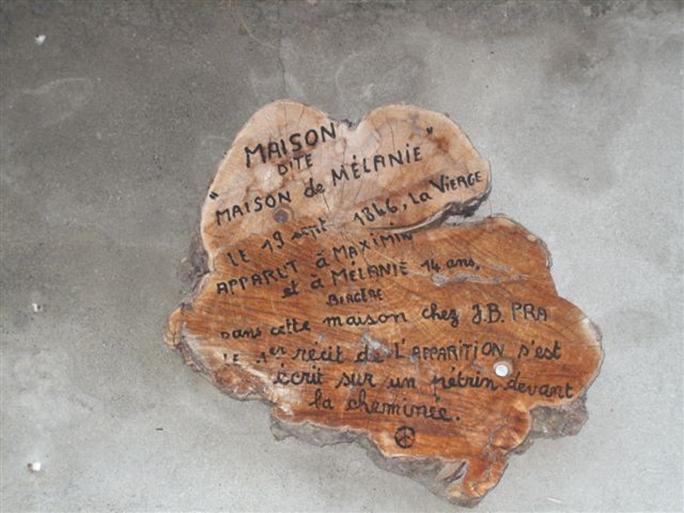 MAISON
DITE
"MAISON de MÉLANIE"
LE 19 sept. 1846, La VIERGE
APPARUT à MAXIMIN
et à MÉLANIE 14 ans,
BERGÈRE
Dans cette maison chez J.B. PRA
LE 1er récit de L'APPARITION s'est
écrit sur un pétrin devant
la cheminée.